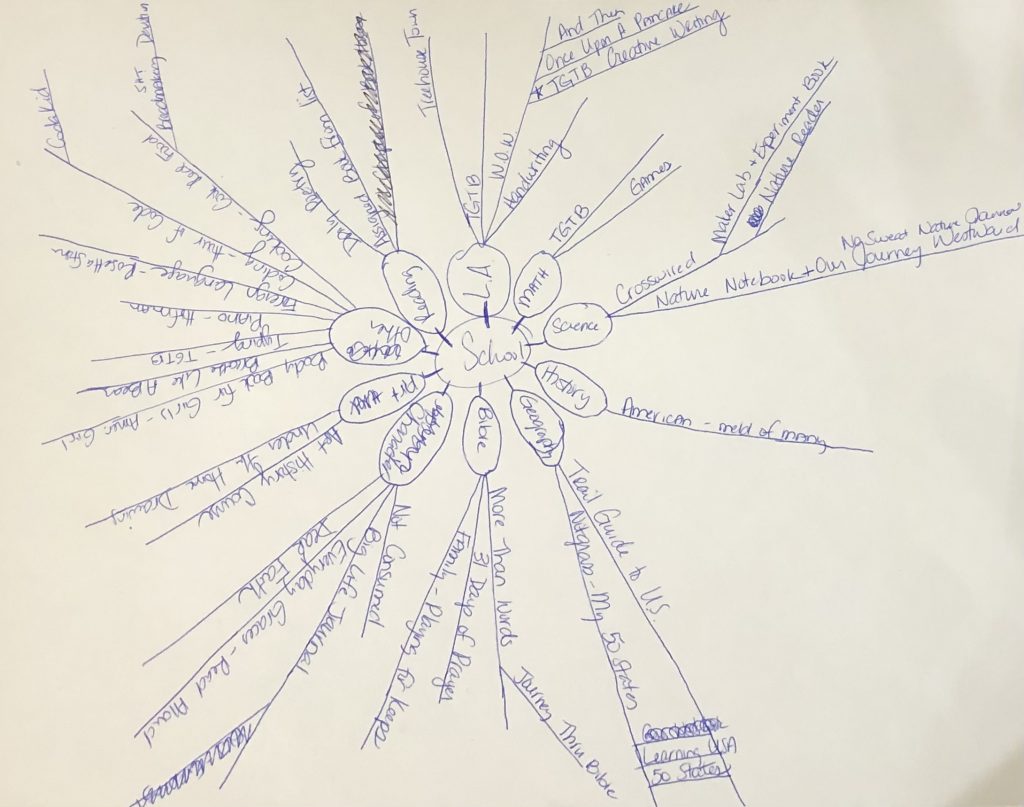 School
L.A
TGTB
Treehouse Town
W.O.W.
And Then
Once Upon A Pancake
* TGTB Creative Writing
Handwriting
MATH
TGTB
Games
Science
Crosswired
Maker Lab + Experiment Book
Nature Reader
Nature Notebook + Our Journey Westward
No Sweat Nature
History
American - meld of many
Geography
Trail Guide to U.S.
Notgrass - My 50 States
Learning USA
50 States
Bible
More Than Words
Journey Thru Bible
31 Days of Prayer
Family - Playing for Keeps
Character
Not Consumed
Big Life Journal
Everyday Graces - Read Aloud
Deal Faith
Art +
Art History Course
Under the Home Drawing
Other
Body Book for Girls - Amer. Girl
Breathe Like A Bear
Typing - TGTB
Piano - Hoffman
Foreign Language - Rosetta Stone
Coding - Hour of Code
CodaKid
Cooking - Kids Cook Real Food
Breadmaking
Reading
Daily Poetry
Assigned Book from list